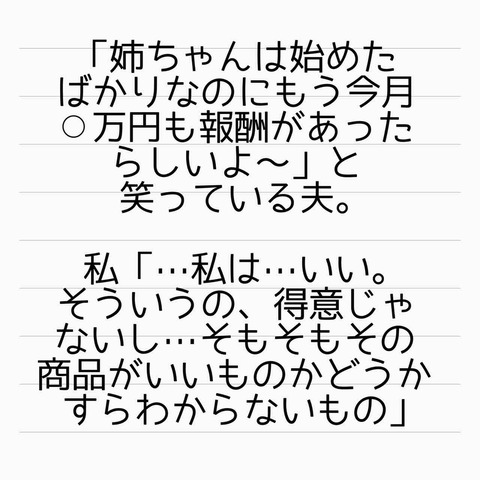 「姉ちゃんは始めた
ばかりなのにもう今月
○万円も報酬があった
らしいよ〜」と
笑っている夫。
私「…私は…いい。
そういうの、得意じゃ
ないし…そもそもその
商品がいいものかどうか
すらわからないもの」